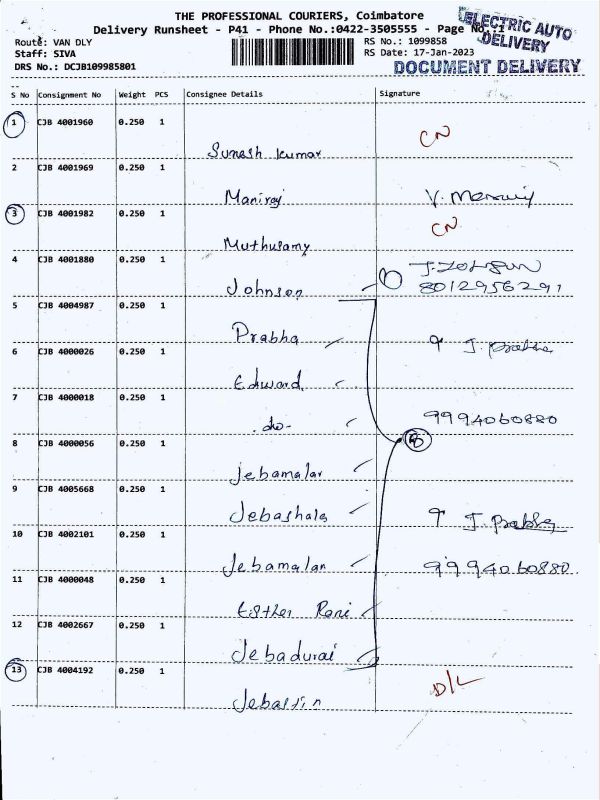 THE PROFESSIONAL COURIERS, Coimbatore
Delivery Runsheet - P41 - Phone No.:0422-3505555 - Page No.:1
ELECTRIC AUTO
DELIVERY
DOCUMENT DELIVERY
Route: VAN DLY
RS No.: 1099858
Staff: SIVA
RS Date: 17-Jan-2023
DRS No.: DCJB109985801
S No Consignment No Weight PCS Consignee Details Signature
1 CJB 4001960 0.250 1
Suresh kumar CN
2 CJB 4001969 0.250 1
Maniraj V.
3 CJB 4001982 0.250 1
Muthusamy CN
4 CJB 4001880 0.250 1
Johnson J. Johnson
8012956291
5 CJB 4004987 0.250 1
Prabha J. Prabha
6 CJB 4000026 0.250 1
Edward
7 CJB 4000018 0.250 1
-do- 9994060880
8 CJB 4000056 0.250 1
Jebamalar
9 CJB 4005668 0.250 1
Jebashala J. Prabha
10 CJB 4002101 0.250 1
Jebamalar 9994060880
11 CJB 4000048 0.250 1
Esther Rani
12 CJB 4002667 0.250 1
Jebadurai
13 CJB 4004192 0.250 1
Jebastin D/L